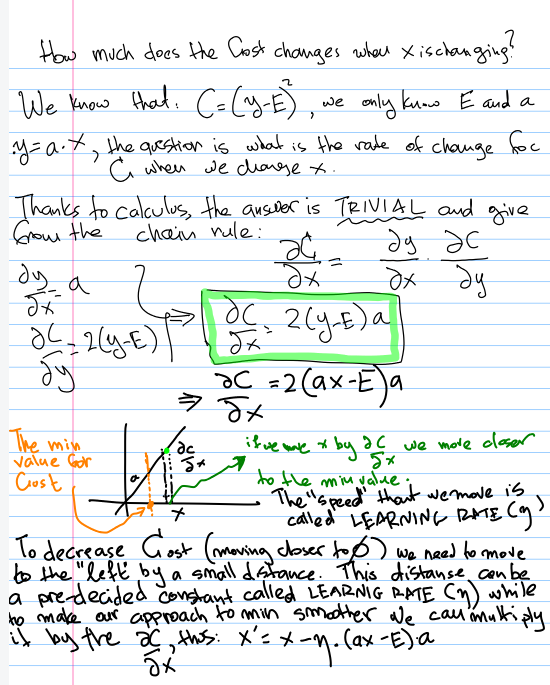 How much does the Cost changes when x is changing?
We know that: C=(y-E)², we only know E and a
y=a.x, the question is what is the rate of change for
C when we change x.
Thanks to calculus, the answer is TRIVIAL and give
from the chain rule: ∂C/∂x = ∂y/∂x · ∂C/∂y
∂y/∂x = a
∂C/∂y = 2(y-E)
⇒ ∂C/∂x = 2(y-E)a
⇒ ∂C/∂x = 2(ax-E)a
The min
value for
Cost
a
∂c/∂x
x
if we move x by ∂C/∂x we move closer
to the min value.
The "speed" that we move is
called LEARNING RATE (η)
To decrease Cost (moving closer to 0) we need to move
to the "left" by a small distance. This distanse can be
a pre-decided constant called LEARNIG RATE (η) while
to make our approach to min smother we can multiply
it by the ∂C/∂x, thus: x' = x - η. (ax-E)·a